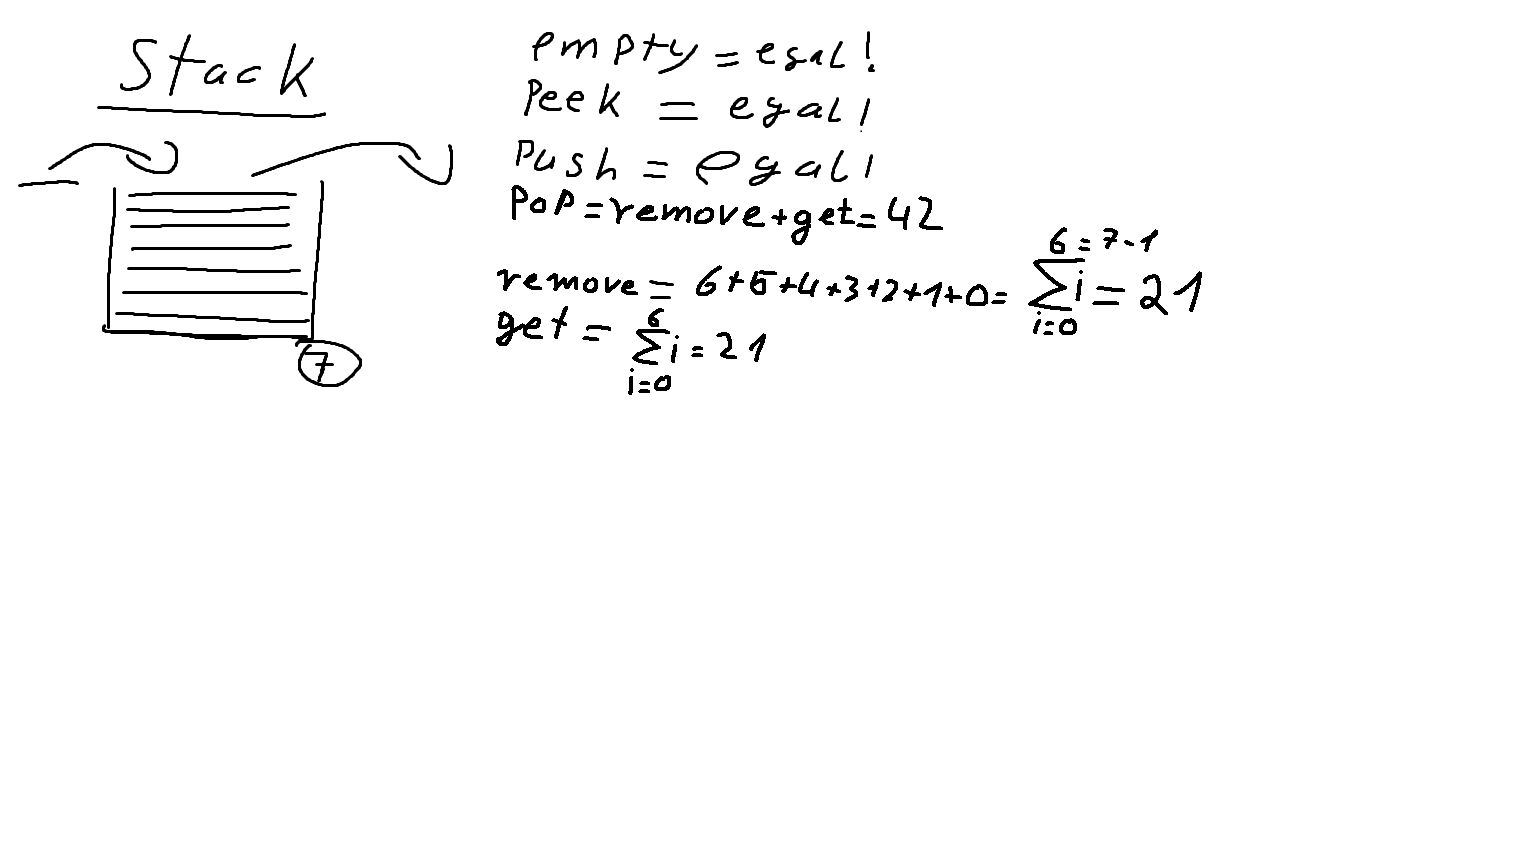 Stack
empty = egal!
Peek = egal!
Push = egal!
PoP = remove + get = 42
remove = 6+5+4+3+2+1+0 = ∑i = 21
6 = 7-1
i=0
get = ∑i = 21
6
i=0
7